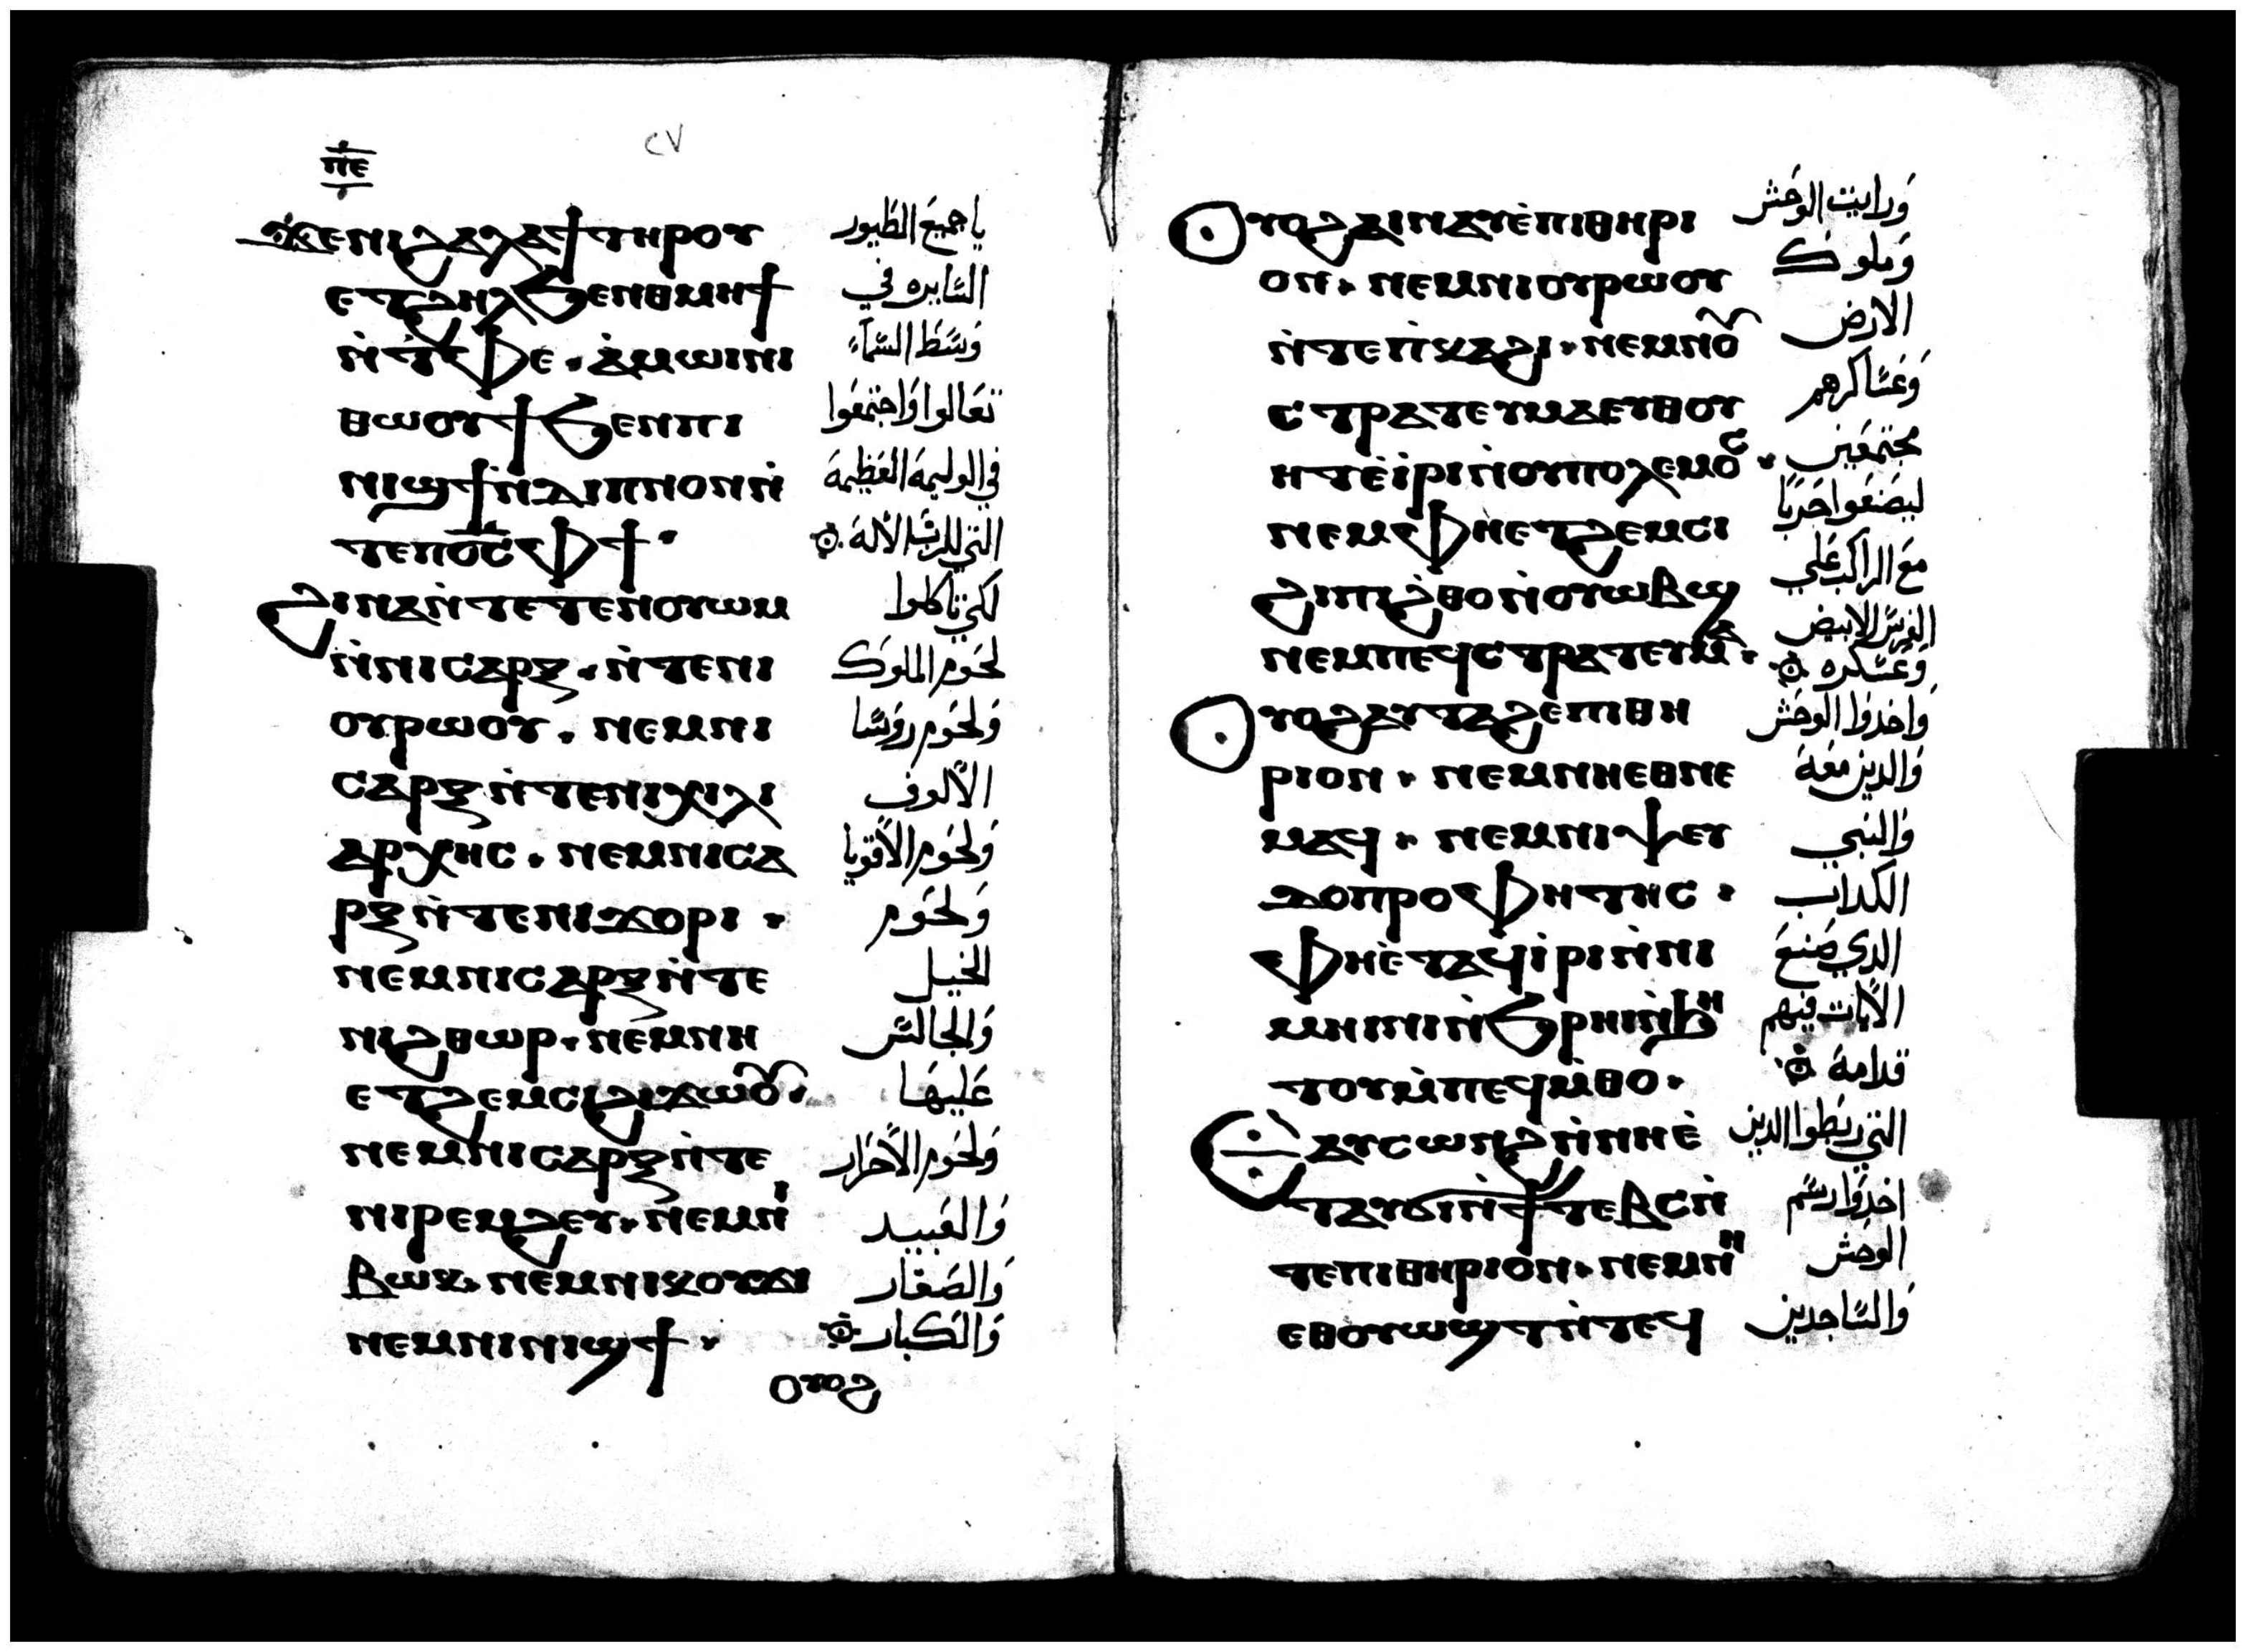 ⲡ̅ⲉ̅
٢٧
ϫⲉⲛⲓϩⲁⲗⲁϯ ⲧⲏⲣⲟⲩ
يا جميع الطيور
ⲉⲧϩⲏⲗ ϧⲉⲛⲑⲙⲏϯ
السايره في
ⲛ̀ⲧ̀ⲫⲉ · ⲁ̀ⲙⲱⲓⲛⲓ
وَسَط السمآء
ⲑⲱⲟⲩϯ ϧⲉⲛⲡⲓ
تعَالوا وَاجتمعَوا
ⲛⲓϣϯ ⲛ̀ⲇⲓⲡⲛⲟⲛ ⲛ̀
في الوليمة العَظيمة
ⲧⲉⲡⲟ̅ⲥ̅ ⲫϯ ·
التي للرب الاله
ϩⲓⲛⲁ ⲛ̀ⲧⲉⲧⲉⲛⲟⲩⲱⲙ
لكي تاكلوا
ⲛ̀ⲛⲓⲥⲁⲣⲝ · ⲛ̀ⲧⲉⲛⲓ
لحوم الملوك
ⲟⲩⲣⲱⲟⲩ · ⲛⲉⲙⲛⲓ
وَلحوم روسَا
ⲥⲁⲣⲝ ⲛ̀ⲧⲉⲛⲓⲭⲓⲗⲓ
الالوف
ⲁⲣⲭⲏⲥ · ⲛⲉⲙⲛⲓⲥⲁ
وَلحوم الاقويا
ⲣⲝ ⲛ̀ⲧⲉⲛⲓϫⲟⲣⲓ ·
وَلحَوم
ⲛⲉⲙⲛⲓⲥⲁⲣⲝ ⲛ̀ⲧⲉ
الخيل
ⲛⲓϩⲑⲱⲣ · ⲛⲉⲙⲛⲏ
وَالجالس
ⲉⲧϩⲉⲙⲥⲓ ϩⲓϫⲱⲟⲩ ·
عَليهَا
ⲛⲉⲙⲛⲓⲥⲁⲣⲝ ⲛ̀ⲧⲉ
وَلحوم الاحَرار
ⲛⲓⲣⲉⲙϩⲉⲩ · ⲛⲉⲙⲛⲓ
وَالعَبيد
ⲃⲱⲕ · ⲛⲉⲙⲛⲓⲕⲟⲩϫⲓ
وَالصغار
ⲛⲉⲙⲛⲓⲛⲓϣϯ ·
وَالكبار
ⲟⲩⲟϩ
ⲟⲩⲟϩ ⲁⲓⲛⲁⲩ ⲉ̀ⲡⲓⲑⲏⲣⲓ
وَرايت الوحَش
ⲟⲛ · ⲛⲉⲙⲛⲓⲟⲩⲣⲱⲟⲩ
وَملوك
ⲛ̀ⲧⲉⲡ̀ⲕⲁϩⲓ · ⲛⲉⲙⲛⲟⲩ
الارض
ⲥⲧⲣⲁⲧⲉⲩⲙⲁ ⲉⲩⲑⲟⲩ
وَعَساكرهم
ⲏⲧ ⲉ̀ⲓ̀ⲣⲓ ⲛ̀ⲟⲩⲡⲟⲗⲉⲙⲟⲥ ·
مجتمعَين
ⲛⲉⲙⲫⲏⲉⲧϩⲉⲙⲥⲓ
ليصَنعَوا حَربًا
ϩⲓⲡⲓϩⲑⲟ ⲛ̀ⲟⲩⲱⲃϣ
مَع الراكب عَلي
ⲛⲉⲙⲡⲉϥⲥⲧⲣⲁⲧⲉⲩⲙⲁ ·
الفرس الابيض
وَعَسكره
ⲟⲩⲟϩ ⲁⲩⲧⲁϩⲉ ⲡⲓⲑⲏ
وَاخدوا الوحَش
ⲣⲓⲟⲛ · ⲛⲉⲙⲛⲏⲉⲑⲛⲉ
وَالدين معَه
ⲙⲁϥ · ⲛⲉⲙⲛⲓⲯⲉⲩ
وَالنبي
ⲇⲟⲡⲣⲟⲫⲏⲧⲏⲥ ·
الكداب
ⲫⲏⲉ̀ⲧⲁϥⲓ̀ⲣⲓ ⲛ̀ⲛⲓ
الدي صَنعَ
ⲙⲏⲓⲛⲓ ⲛ̀ϧⲣⲏⲓ ⲛ̀ϧⲏ
الايات فيهم
ⲧⲟⲩ ⲙ̀ⲡⲉϥⲙ̀ⲑⲟ ·
قدامه
ⲁⲩⲥⲱⲛϩ ⲛ̀ⲛⲏⲉ̀
التي ربطوا الدين
ⲧⲁⲩϭⲓ ⲛ̀ϯⲧⲉⲃⲥ ⲛ̀
اخدوا رسم
ⲧⲉⲡⲓⲑⲏⲣⲓⲟⲛ · ⲛⲉⲙⲛⲏ
الوحش
ⲉⲑⲟⲩⲱϣⲧ ⲛ̀ⲧⲉϥ
وَالساجدين